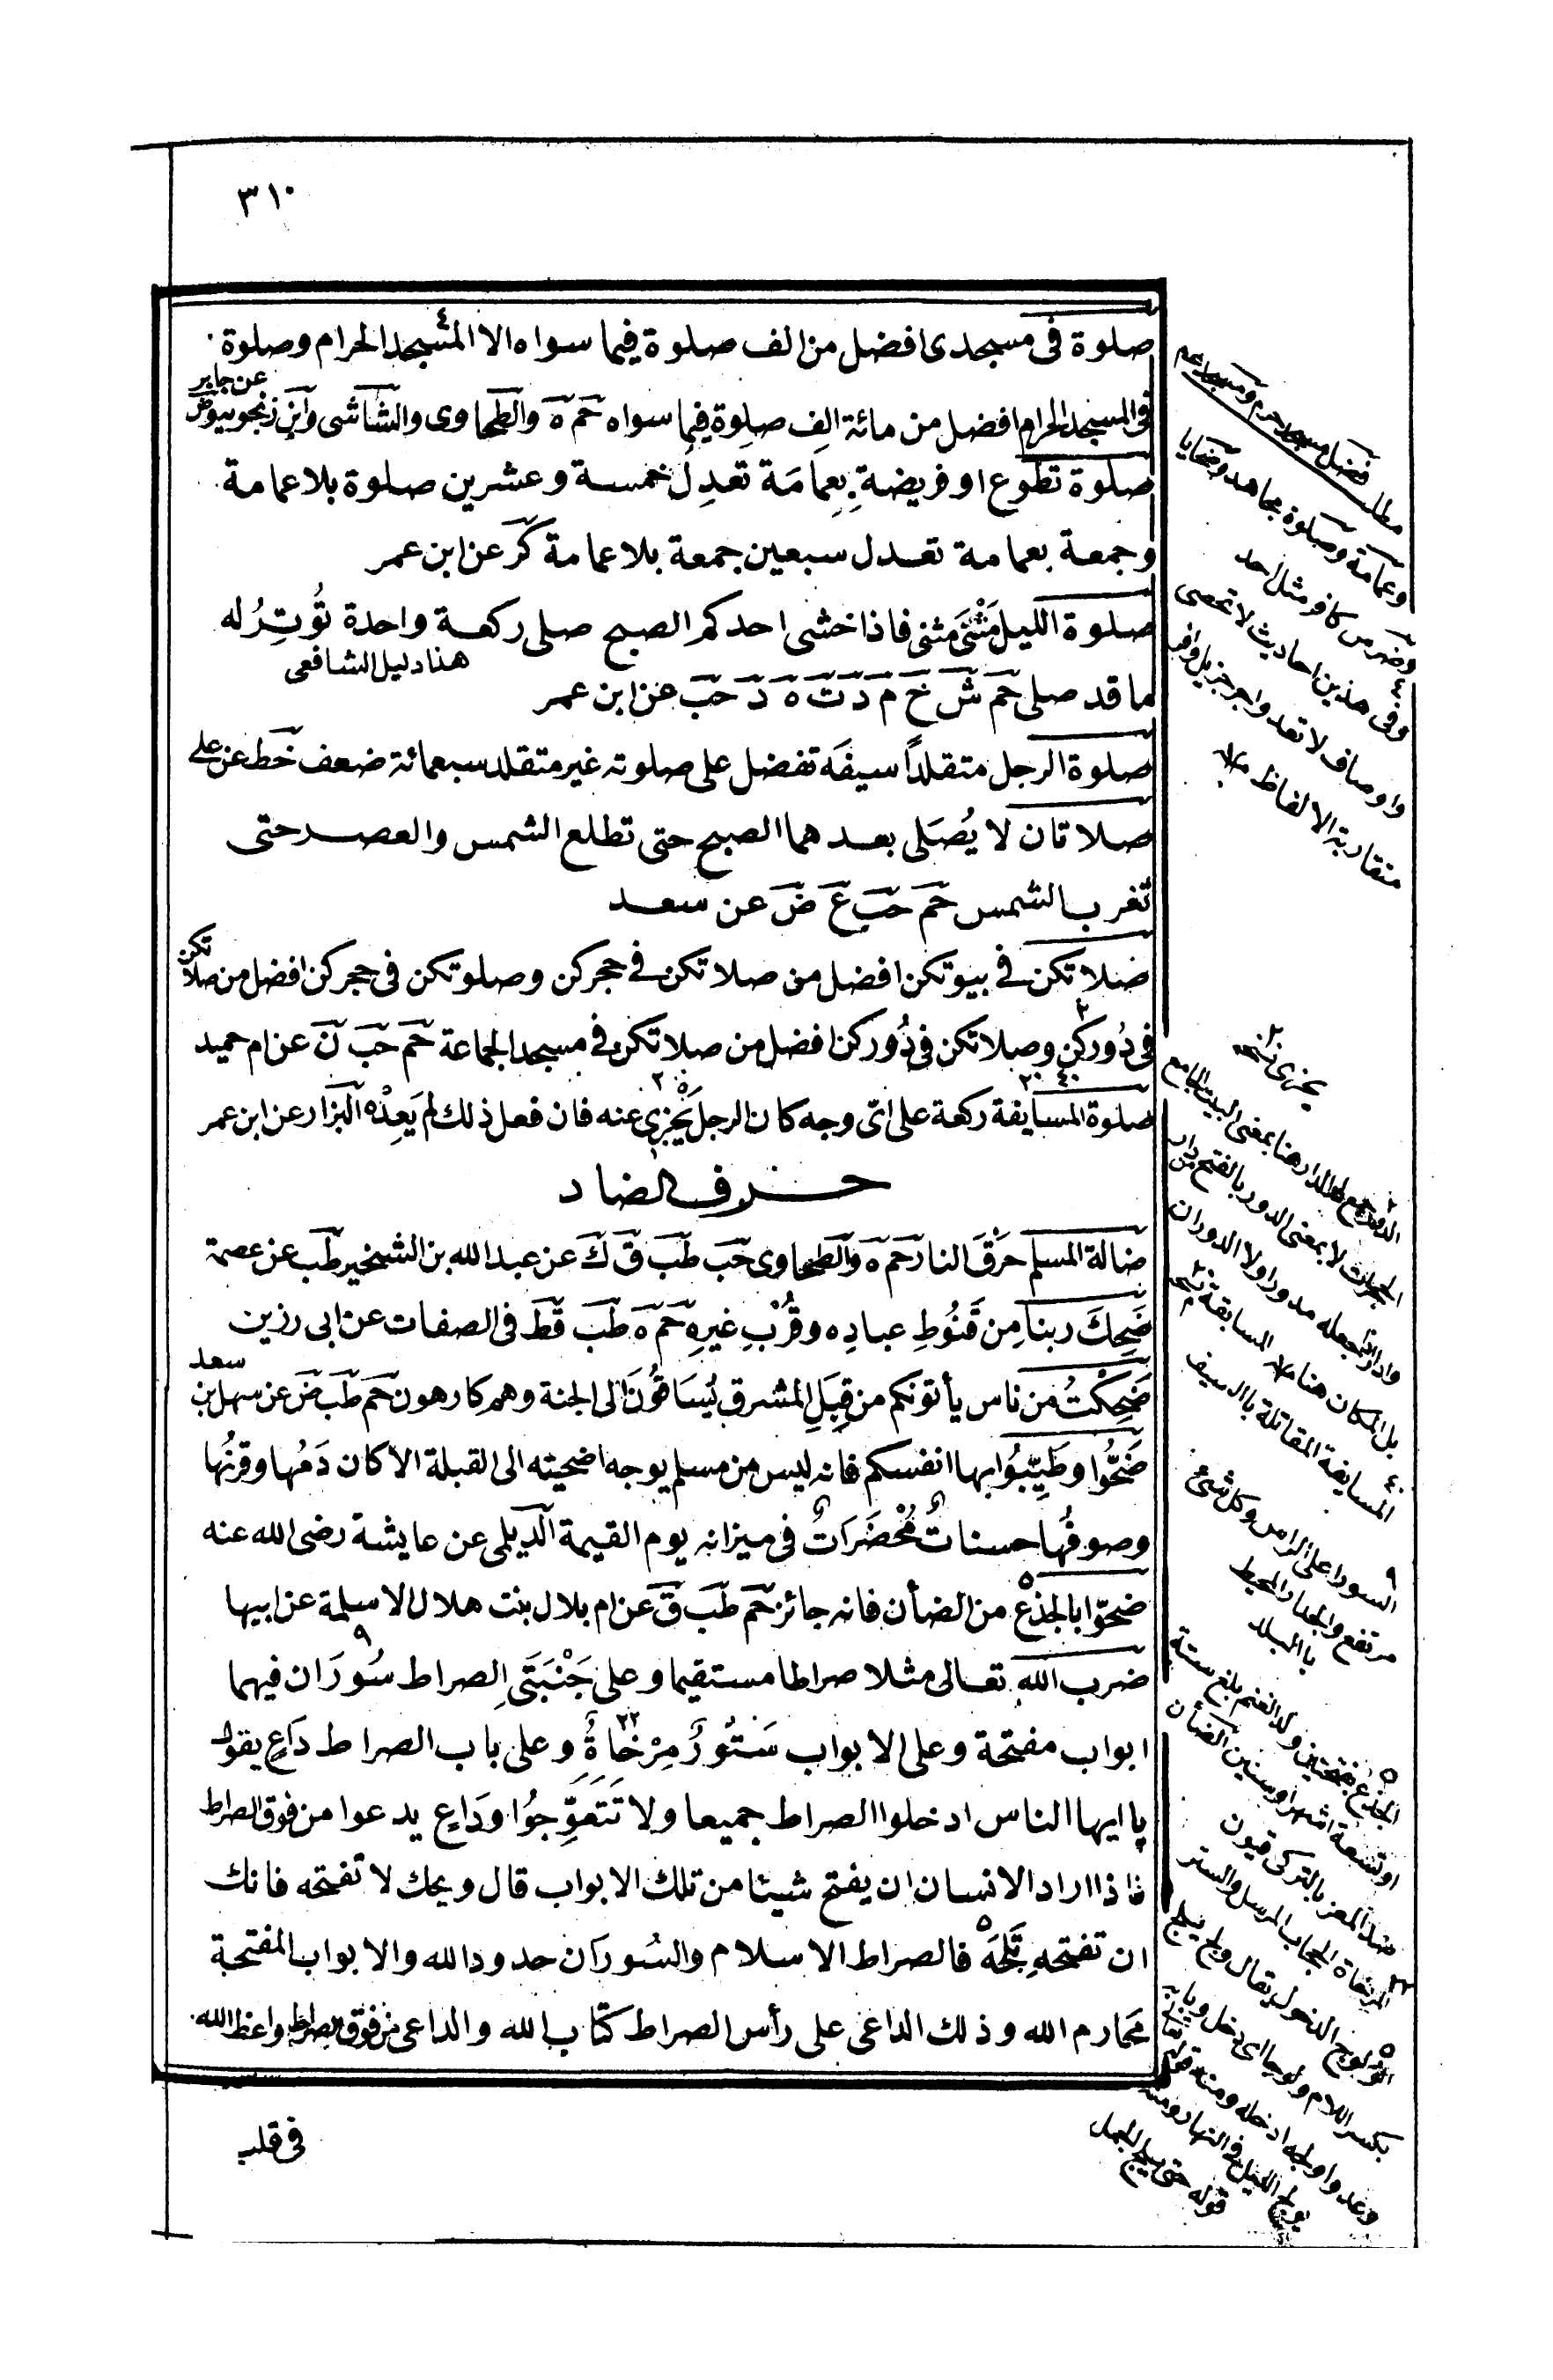 ٣١٠
صلوة فى مسجدى افضل من الف صلوة فيما سواه الا المسجد الحرام وصلوة
فى المسجد الحرام افضل من مائة الف صلوة فيما سواه حم ه والطحاوى والشاشى وابن زنجويه وض عن جابر
صلوة تطوع او فريضة بعمامة تعدل خمسة وعشرين صلوة بلا عمامة
وجمعة بعمامة تعدل سبعين جمعة بلا عمامة كر عن ابن عمر
صلوة الليل مَثْنَى مثنى فاذا خشى احدكم الصبح صلى ركعة واحدة تُوتِرُ له
هذا دليل الشافعى
ما قد صلى حم ش خ م د ت ه د حب عن ابن عمر
صلوة الرجل متقلداً سيفَه تفضل على صلوته غير متقلد سبعمائة ضعف خط عن على
صلاتان لا يُصَلى بعدهما الصبح حتى تطلع الشمس والعصر حتى
تغرب الشمس حم حب ع ض عن سعد
صلاتكن فى بيوتكن افضل من صلاتكن فى حجركن وصلوتكن فى حجركن افضل من صلاتكن
فى دُوركن وصلاتكن فى دُوركن افضل من صلاتكن فى مسجد الجماعة حم حب ن عن ام حميد
صلوة المسايفة ركعة على اىّ وجه كان الرجل يَجْزِى عنه فان فعل ذلك لم يَعِدْه البزار عن ابن عمر
حرف الضاد
ضالة المسلم حَرَقَ النار حم ه والطحاوى حب طب ق ك عن عبد الله بن الشخير طب عن عصمة
ضَحِكَ ربنا مِن قَنُوطِ عبادِه وقُرْبِ غيرِهِ حم ه طب قط فى الصفات عن ابى رزين
ضَحِكْتُ من ناس يأتونكم من قِبَلِ المشرق يُسَاقُونَ الى الجنة وهم كارهون حم طب ض عن سهل بن سعد
ضَحُّوا وطَيِّبُوا بها انفسكم فانه ليس من مسلم يوجه اضحيته الى القبلة الا كان دَمُها وقرنُها
وصوفُها حسناتٌ مُحْضَرَاتٌ فى ميزانه يوم القيمة الديلمى عن عايشة رضى الله عنه
ضحّوا بالجذع من الضأن فانه جائز حم طب ق عن ام بلال بنت هلال الاسلمة عن ابيها
ضرب الله تعالى مثلا صراطا مستقيما وعلى جَنْبَتَىِ الصراط سُورَان فيهما
ابواب مفتحة وعلى الابواب سَتُورٌ مِرْخَاةٌ وعلى باب الصراط دَاعٍ يقول
يا ايها الناس ادخلوا الصراط جميعا ولا تَتَعَوِّجُوا ودَاعٍ يدعوا من فوق الصراط
فاذا اراد الانسان ان يفتح شيئا من تلك الابواب قال ويحك لا تفتحه فانك
ان تفتحهِ تَلِجْهُ فالصراط الاسلام والسُورَان حدود الله والابواب المفتحة
محارم الله وذلك الداعى على رأس الصراط كتاب الله والداعى من فوق الصراط واعظ الله
فى قلب
مطلب فضل مسجد حرم ومسجدعم
وعمامة وصلوة مجاهد وضحايا
وضرس كافر مثل احد
وفى هذين احاديث لا تحصى
واوصاف لا تعد واجر جزيل وافر
متقاربة الالفاظ
يجزى نسخه
المسايفة المقاتلة بالسيف
السور اعلى الراس وكل شئ
مرتفع والجدار المحيط
بالبلد
الجذع بفتحتين ولد الغنم بلغ ستة
او تسعة اشهر او سنين الضأن
ضد المعز بالتركى قيون
المرخاة الحجاب المرسل والستر
الولوج الدخول يقال ولج يلج
بكسر اللام ولوجا اى دخل وبابه
وعد واولجه ادخله ومنه قوله تعالى
يولج الليل فى النهار ومنه
قوله حتى يلج الجمل